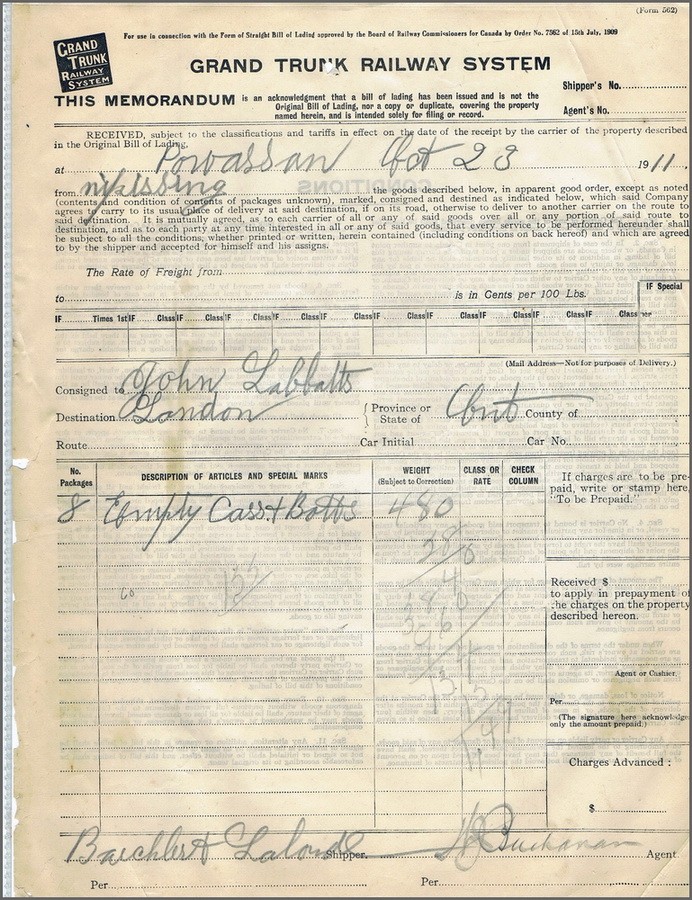 (Form 562)
For use in connection with the Form of Straight Bill of Lading approved by the Board of Railway Commissioners for Canada by Order No. 7562 of 15th July, 1909
GRAND TRUNK RAILWAY SYSTEM
GRAND TRUNK RAILWAY SYSTEM
Shipper's No.
THIS MEMORANDUM is an acknowledgment that a bill of lading has been issued and is not the
Original Bill of Lading, nor a copy or duplicate, covering the property
named herein, and is intended solely for filing or record.
Agent's No.
RECEIVED, subject to the classifications and tariffs in effect on the date of the receipt by the carrier of the property described
in the Original Bill of Lading,
at Powassan Oct 23 1911.
from the goods described below, in apparent good order, except as noted
(contents and condition of contents of packages unknown), marked, consigned and destined as indicated below, which said Company
agrees to carry to its usual place of delivery at said destination, if on its road, otherwise to deliver to another carrier on the route to
said destination. It is mutually agreed, as to each carrier of all or any of said goods over all or any portion of said route to
destination, and as to each party at any time interested in all or any of said goods, that every service to be performed hereunder shall
be subject to all the conditions, whether printed or written, herein contained (including conditions on back hereof) and which are agreed
to by the shipper and accepted for himself and his assigns.
The Rate of Freight from
to is in Cents per 100 Lbs.
IF Special
IF Times 1st IF Class IF Class IF Class IF Class IF Class IF Class IF Class IF Class IF Class per
(Mail Address—Not for purposes of Delivery.)
Consigned to John Labbatts
Destination London Province or State of Ont County of
Route Car Initial Car No.
No. Packages DESCRIPTION OF ARTICLES AND SPECIAL MARKS WEIGHT (Subject to Correction) CLASS OR RATE CHECK COLUMN
If charges are to be pre-
paid, write or stamp here,
"To be Prepaid."
8 Empty Cass & Botts 480
Received $
to apply in prepayment of
the charges on the property
described hereon.
Agent or Cashier.
Per
(The signature here acknowledges
only the amount prepaid.)
Charges Advanced :
$
Baechler & Lalonde Shipper. Buchanan Agent
Per Per